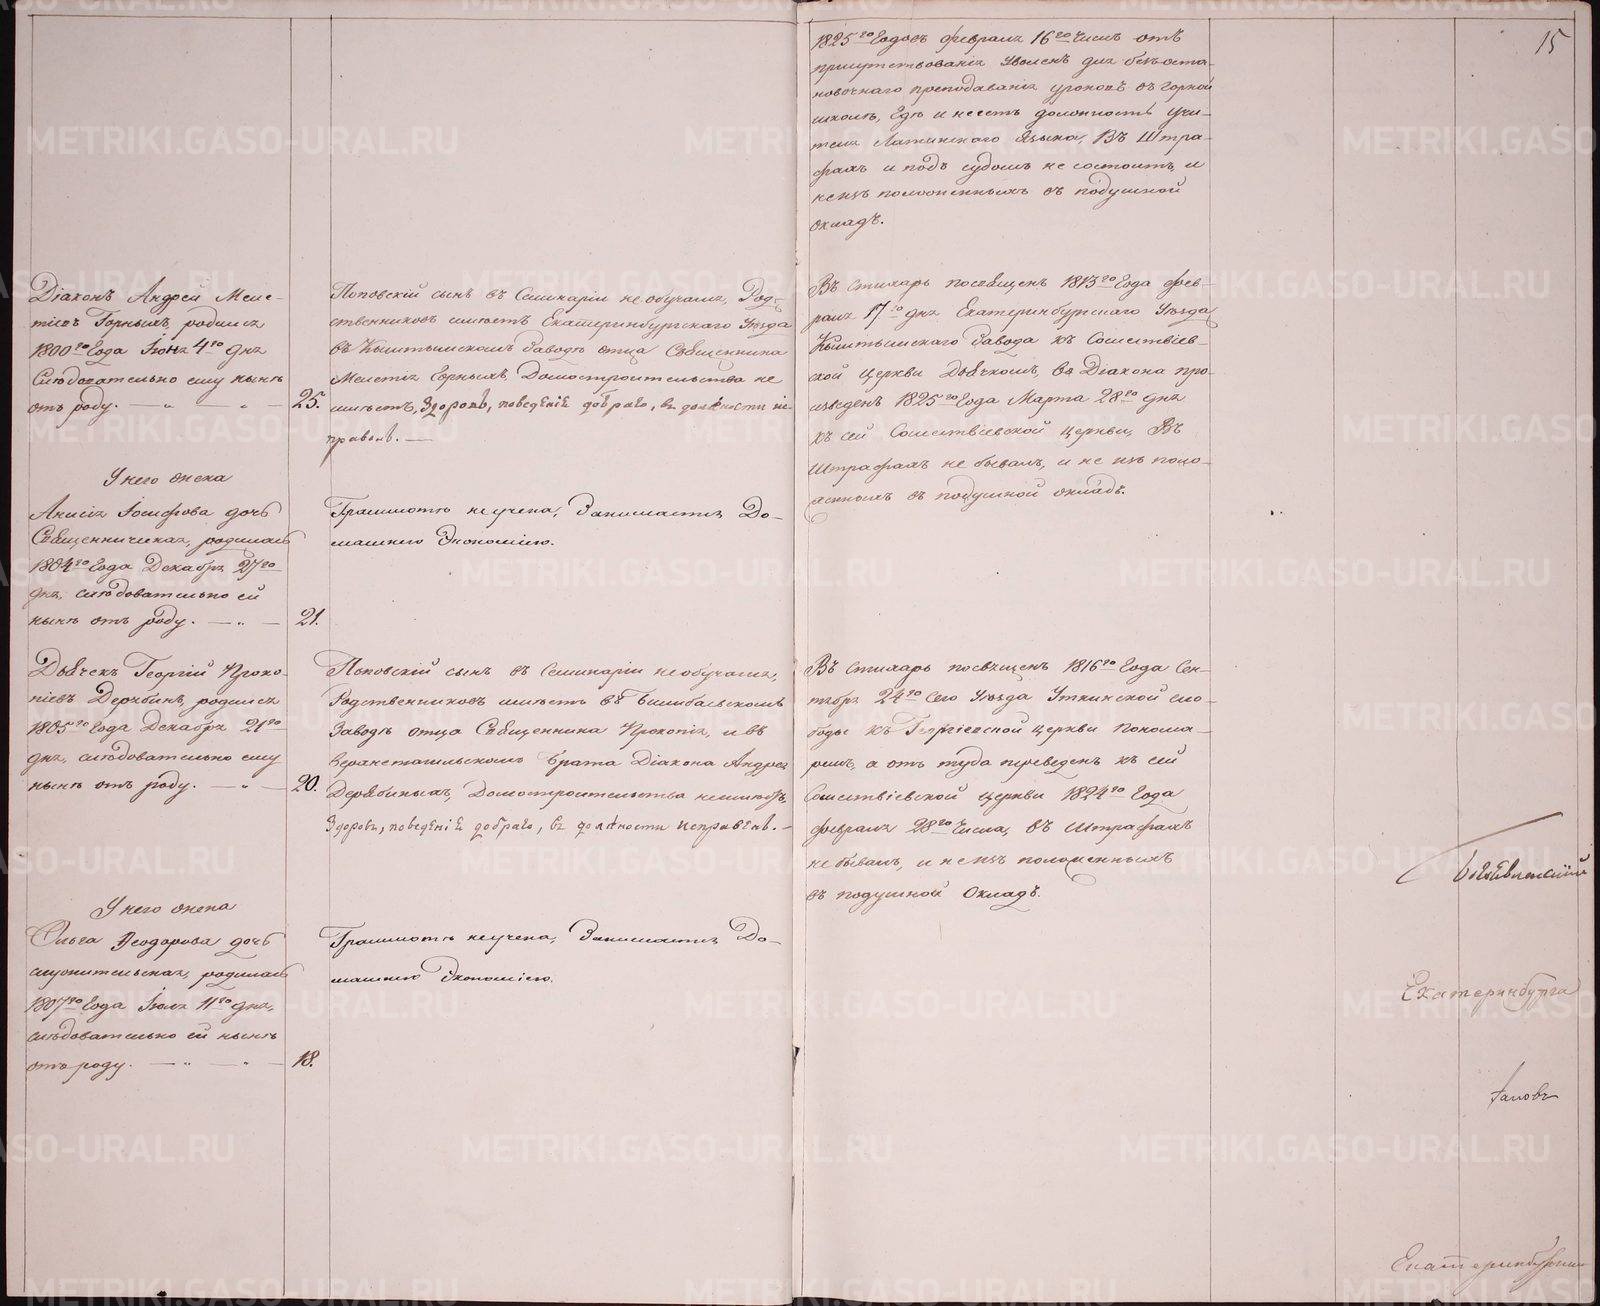 15
1825го Годовъ февраля 16го числъ отъ
присутствованія уволенъ для безъоста-
новочнаго преподаванія уроковъ въ горной
школѣ, гдѣ и несетъ должность учи-
теля Латинскаго языка, Въ Штра-
фахъ и подъ судомъ не состоитъ, и
не изъ положенныхъ въ подушной
окладъ.
Діаконъ Андрей Меле-
тіевъ Горныхъ, родился
1800го Года Іюня 4го дня
Слѣдовательно ему нынѣ
отъ роду. 25.
Поповскій сынъ въ Семинаріи не обучался, Род-
ственниковъ имѣетъ Екатеринбургскаго Уѣзда
въ Кыштымскомъ Заводѣ отца Священника
Мелетія Горныхъ, Домостроительства не
имѣетъ, Здоровъ, поведенія добраго, въ должности ис-
правенъ.
Въ стихарь посвященъ 1813го Года фев-
раля 17го дня Екатеринбургскаго Уѣзда
Кыштымскаго Завода къ Сошествіев-
ской церкви Дьячкомъ, во Діакона про-
изведенъ 1825го Года Марта 28го дня
къ сей Сошествіевской церкви, Въ
Штрафахъ не бывалъ, и не изъ поло-
женныхъ въ подушной окладъ.
У него жена
Анисія Іосифова дочь
Священническая, родилась
1804го Года Декабря 27го
дня, слѣдовательно ей
нынѣ отъ роду. 21.
Грамматѣ неучена, Занимается До-
машнею Экономіею.
Дьячекъ Георгій Проко-
піевъ Дерябинъ, родился
1805го Года Декабря 21го
дня, слѣдовательно ему
нынѣ отъ роду. 20.
Поповскій сынъ въ Семинаріи не обучался,
Родственниковъ имѣетъ въ Билимбаевскомъ
Заводѣ отца Священника Прокопія, и въ
Верхнетагильскомъ брата Діакона Андрея
Дерябиныхъ, Домостроительства неимѣетъ,
Здоровъ, поведенія добраго, въ должности исправенъ.
Въ стихарь посвященъ 1816го Года Сен-
тября 24го Сего Уѣзда Уткинской сло-
боды къ Георгіевской церкви Понома-
ремъ, а отъ туда переведенъ къ сей
Сошествіевской церкви 1824го Года
февраля 28го Числа, въ Штрафахъ
не бывалъ, и не изъ положенныхъ
въ подушной Окладъ.
У него жена
Ольга Ѳеодорова дочь
служительская, родилась
1807го Года Іюля 11го дня,
слѣдовательно ей нынѣ
отъ роду. 18.
Грамматѣ неучена, Занимается До-
машнею Экономіею.
Екатеринбурга
METRIKI.GASO-URAL.RU